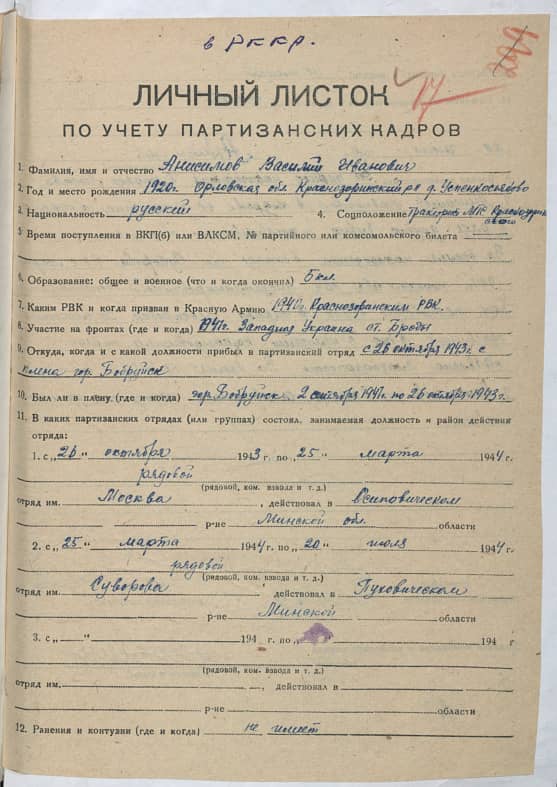 в РККА.
17
ЛИЧНЫЙ ЛИСТОК
ПО УЧЕТУ ПАРТИЗАНСКИХ КАДРОВ
1. Фамилия, имя и отчество Анисимов Василий Иванович
2. Год и место рождения 1920г. Орловская обл Краснозоринский р-н д. Успенское
3. Национальность русский 4. Соцположение Тракторист МТС
5. Время поступления в ВКП(б) или ВЛКСМ, № партийного или комсомольского билета
6. Образование: общее и военное (что и когда окончил) 5 кл.
7. Каким РВК и когда призван в Красную Армию 1940г. Краснозоринским РВК.
8. Участие на фронтах (где и когда) 1941г. Западная Украина ст. Броды
9. Откуда, когда и с какой должности прибыл в партизанский отряд с 26 октября 1943г. с
плена гор. Бобруйск
10. Был ли в плену (где и когда) гор. Бобруйск 2 сентября 1941г. по 26 октября 1943г.
11. В каких партизанских отрядах (или группах) состоял, занимаемая должность и район действия
отряда:
1. с „26" октября 1943 г. по „25" марта 1944 г.
рядовой
(рядовой, ком. взвода и т. д.)
отряд им. Москва, действовал в Осиповическом
р-не Минской обл. области
2. с „25" марта 1944 г. по „20" июля 1944 г.
рядовой
(рядовой, ком. взвода и т. д.)
отряд им. Суворова, действовал в Пуховическом
р-не Минской области
3. с „ " 194 г. по „ 194 г
(рядовой, ком. взвода и т. д.)
отряд им. , действовал в
р-не области
12. Ранения и контузии (где и когда) не имеет